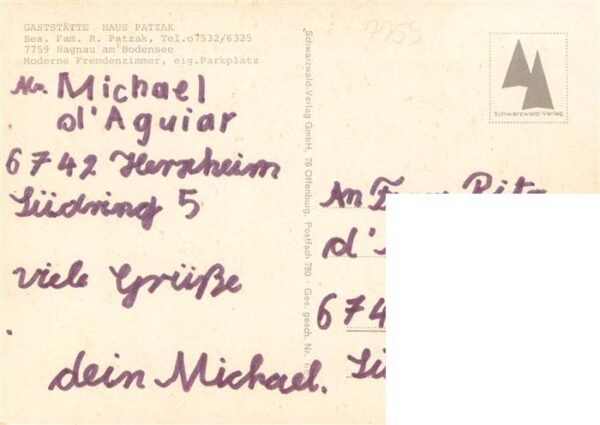 GASTSTÄTTE HAUS PATZAK
Bes. Fam. R. Patzak, Tel.o7532/6325
7759 Hagnau am Bodensee
Moderne Fremdenzimmer, eig.Parkplatz
Abs. Michael
d'Aguiar
6742 Herxheim
Südring 5
viele Grüße
dein Michael.
Schwarzwald-Verlag GmbH, 76 Offenburg, Postfach 780 · Ges. gesch. Nr.
7759
Schwarzwald-Verlag
An Frau
d'
674
Sü